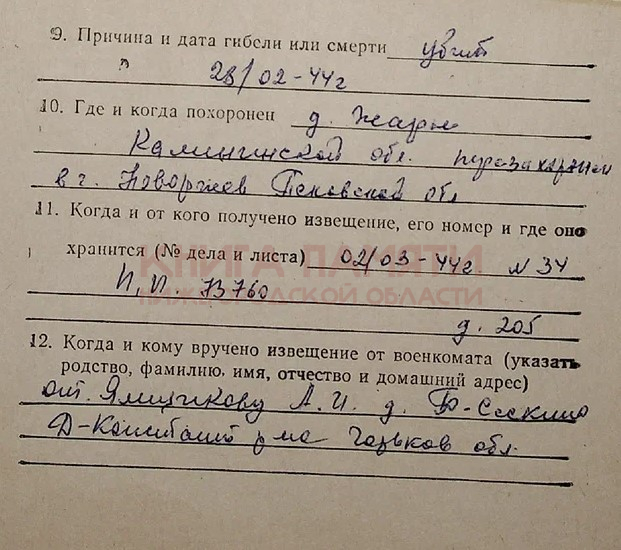 9. Причина и дата гибели или смерти убит
28/02-44г
10. Где и когда похоронен д. Жары
Калининской обл. перезахоронен
в г. Новоржев Псковской обл
11. Когда и от кого получено извещение, его номер и где оно
хранится (№ дела и листа) 02/03-44г N 34
КНИГА ПАМЯТИ
НИЖЕГОРОДСКОЙ ОБЛАСТИ
П, П. 73760
д. 205
12. Когда и кому вручено извещение от военкомата (указать
родство, фамилию, имя, отчество и домашний адрес)
от. Ямщикову А. И. д. Б-Сескино
Д-Констант р-на Горьков обл.